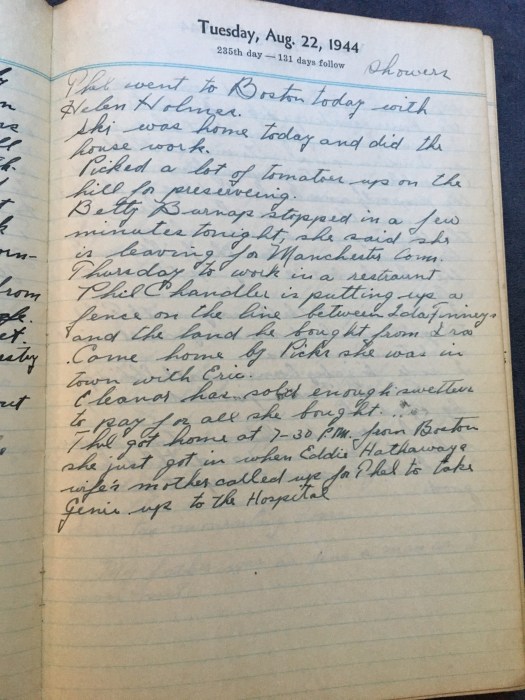 Tuesday, Aug. 22, 1944
235th day — 131 days follow
Showers
Phil went to Boston today with
Helen Holmes.
Ski was home today and did the
house work.
Picked a lot of tomatoes up on the
hill for preserveing.
Betty Burnap stopped in a few
minutes tonight, she said she
is leaving for Manchester Conn.
Thursday to work in a restraunt
Phil Chandler is putting up a
fence on the line between Lola Tinneys
and the land he bought from Ira
Came home by Picks she was in
town with Eric.
Eleanor has sold enough swetters
to pay for all she bought.
Phil got home at 7-30 P.M. from Boston
she just got in when Eddie Hathaways
wife's mother called up for Phil to take
Genie up to the Hospital
rom
out